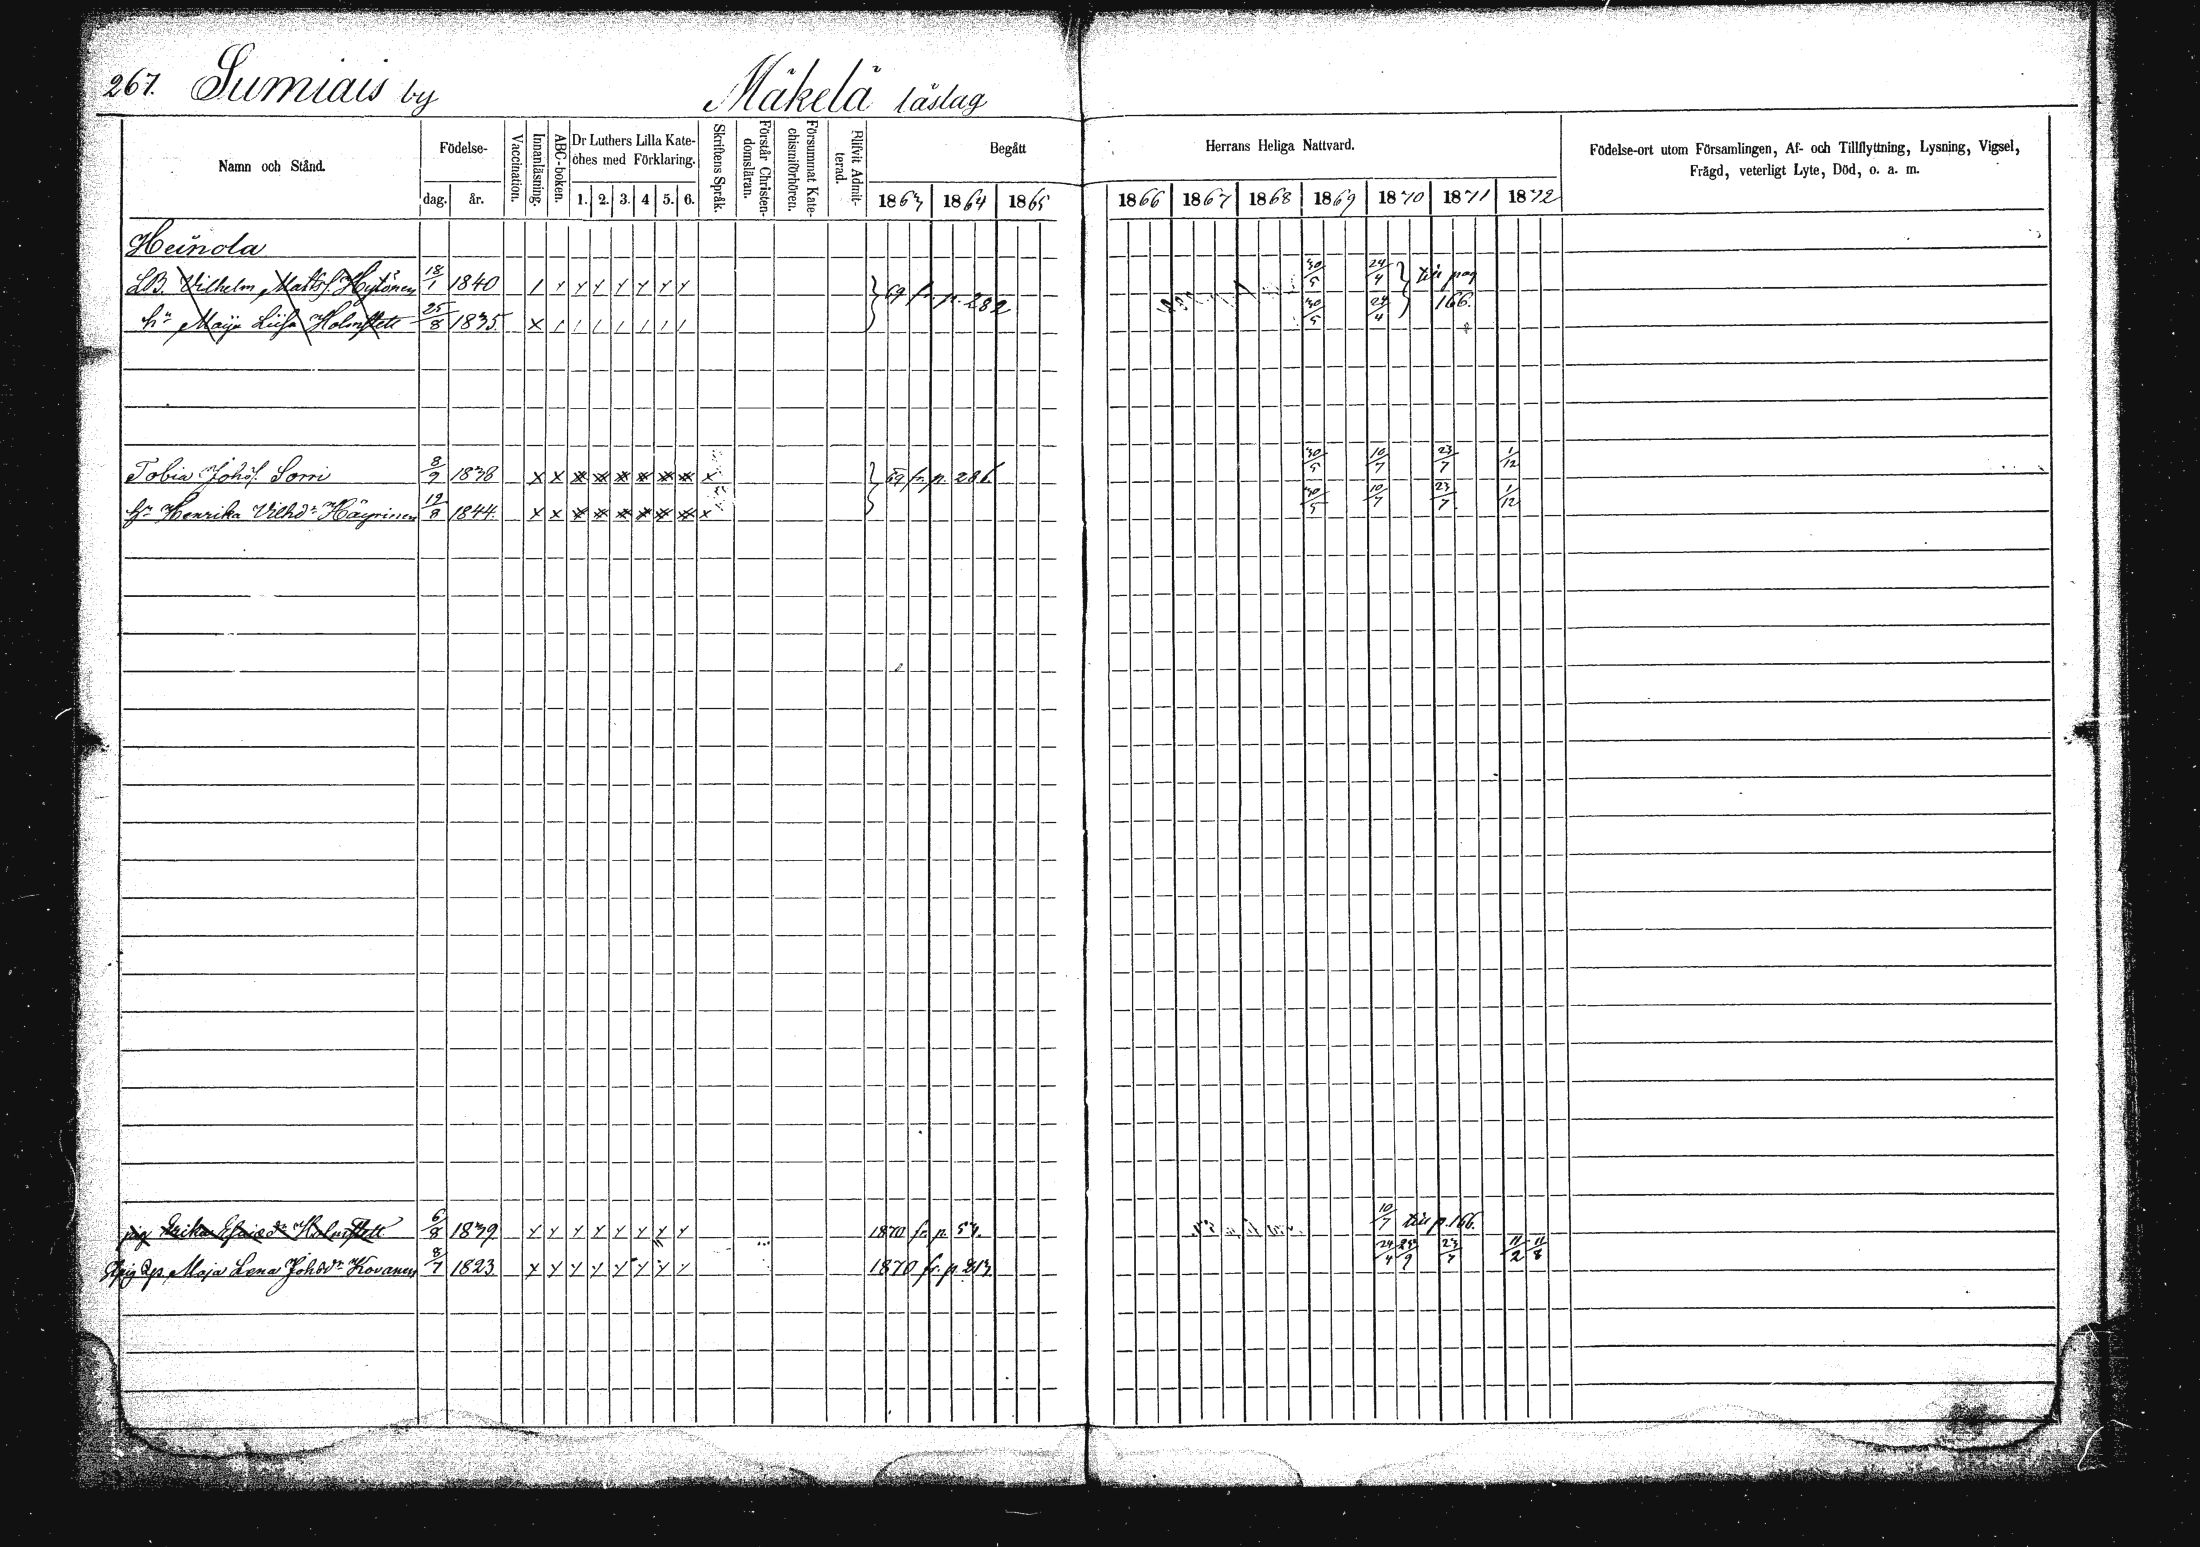 267. Sumiais by Mäkelä läslag
Namn och Stånd.
Födelse-
dag. år.
Vaccination.
Innanläsning.
ABC-boken.
Dr Luthers Lilla Kate-
ches med Förklaring.
1. 2. 3. 4 5. 6.
Skriftens Språk.
Förstår Christen-
domsläran.
Försummat Kate-
chismiförhören.
Blifvit Admit-
terad.
Begått
1863 1864 1865
Herrans Heliga Nattvard.
1866 1867 1868 1869 1870 1871 1872
Födelse-ort utom Församlingen, Af- och Tillflyttning, Lysning, Vigsel,
Frägd, veterligt Lyte, Död, o. a. m.
Heinola
LB. Vilhelm Matts f. Hytönen 18/1 1840 69 fr. p. 282 30/5 24/4 till pag
hu Maija Liisa Holmstett 25/8 1835 30/5 24/4 166.
Tobia Johs f. Sorri 8/9 1838 x x 69 fr. p. 286 30/5 10/7 23/7 1/12
hu Henrika Vilhdr Häyrinen 19/8 1844. x x 30/5 10/7 23/7 1/12
pig Holmstett 6/8 1839 1870 fr. p. 57. 10/7 till p. 166.
Maja Lena Johsdr Kovanen 8/7 1823 1870 fr. p. 213 24/4 23/7 11/2 11/8